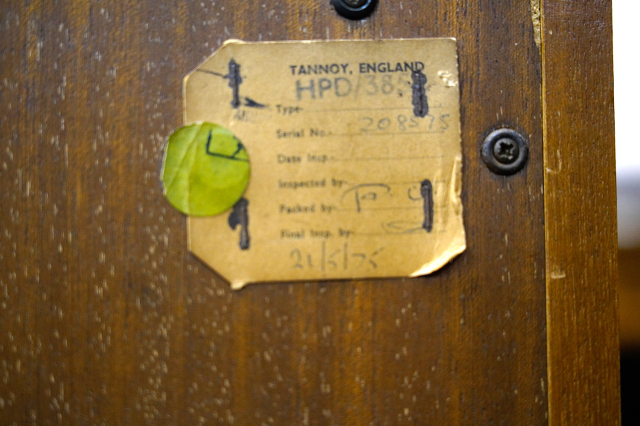 TANNOY, ENGLAND
HPD/385
Type-
Serial No.- 208575
Date Insp.-
Inspected by-
Packed by-
Final Insp. by-
21/5/75